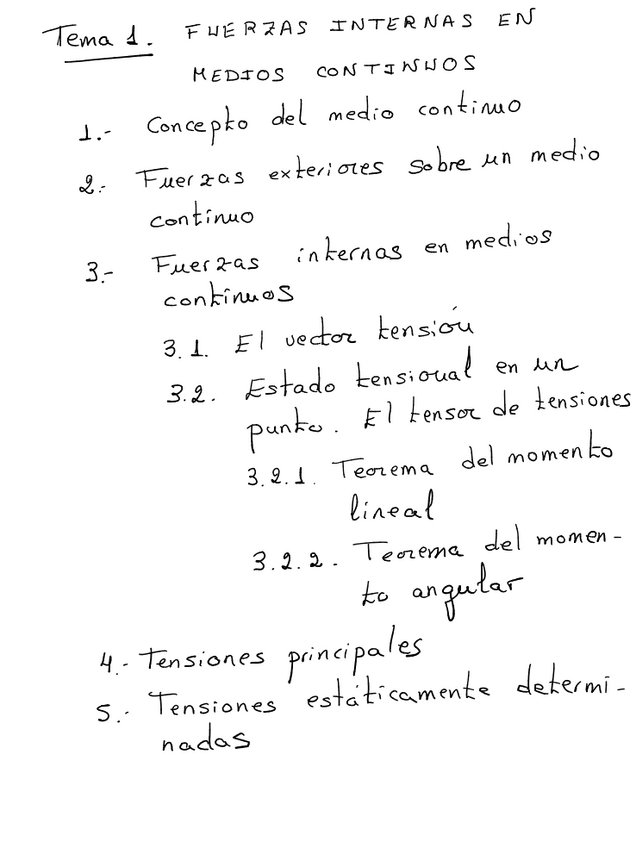 Tema 1. FUERZAS INTERNAS EN
MEDIOS CONTINUOS
1.- Concepto del medio continuo
2.- Fuerzas exteriores sobre un medio
continuo
3.- Fuerzas internas en medios
continuos
3.1. El vector tensión
3.2. Estado tensional en un
punto. El tensor de tensiones
3.2.1. Teorema del momento
lineal
3.2.2. Teorema del momen-
to angular
4.- Tensiones principales
5.- Tensiones estáticamente determi-
nadas